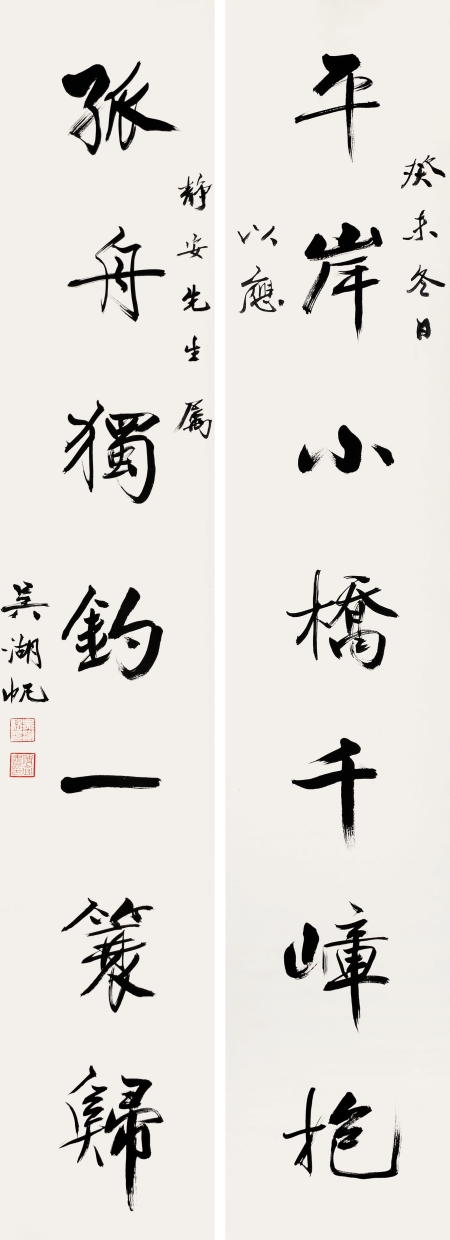 平岸小橋千嶂抱
癸未冬日
以應
孤舟獨釣一蓑歸
靜安先生属
吳湖帆